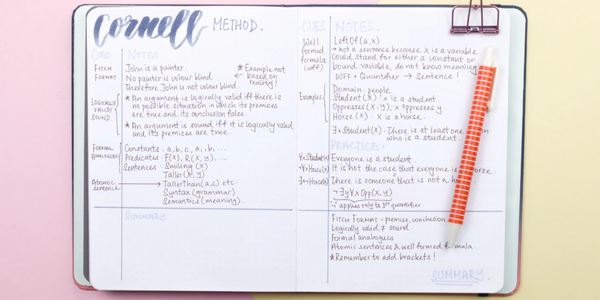 Cornell METHOD.
CUES NOTES
FITCH FORMAT
John is a painter.
No painter is colour blind
Therefore John is not colour blind.
★ Example not
based on
reality!
LOGICALLY VALID/ SOUND
★ An argument is logically valid iff there is
no possible situation in which its premises
are true and its conclusion false.
★ An argument is sound iff it is logically valid
and its premises are true.
FORMAL ANALOGUES
Constants: a, b, c, a, b, ...
Predicates: F(x), R(x, y), ...
Sentences: Smiling (x)
Taller (x, y)
Atomic sentence
TallerThan(a,c) etc
Syntax (grammar)
Semantics (meaning)
SUMMARY
CUES NOTES.
Well formed formula (wff)
LeftOf (a, x)
→ not a sentence because x is a variable
could stand for either a constant or
bound variable, do not know meaning
WFF + Quantifier → Sentence!
Examples
Domain: people.
Student (x): x is a student.
Oppresses (x, y): x oppresses y.
Horse (x): x is a horse.
∃x Student(x): There is at least one
who is a student.
PRACTICE:
∀xStudent(x) Everyone is a student.
¬∀xHorse(x) It is not the case that everyone is a horse.
∃x¬Horse(x) There is someone that is not a
¬∃y∀x Opp(x, y)
applies only to 1st quantifier
FITCH FORMAT - premise, conclusion
Logically valid & sound
Formal analogues
Atomic sentences & well formed formula
★ Remember to add brackets!
SUMMARY.